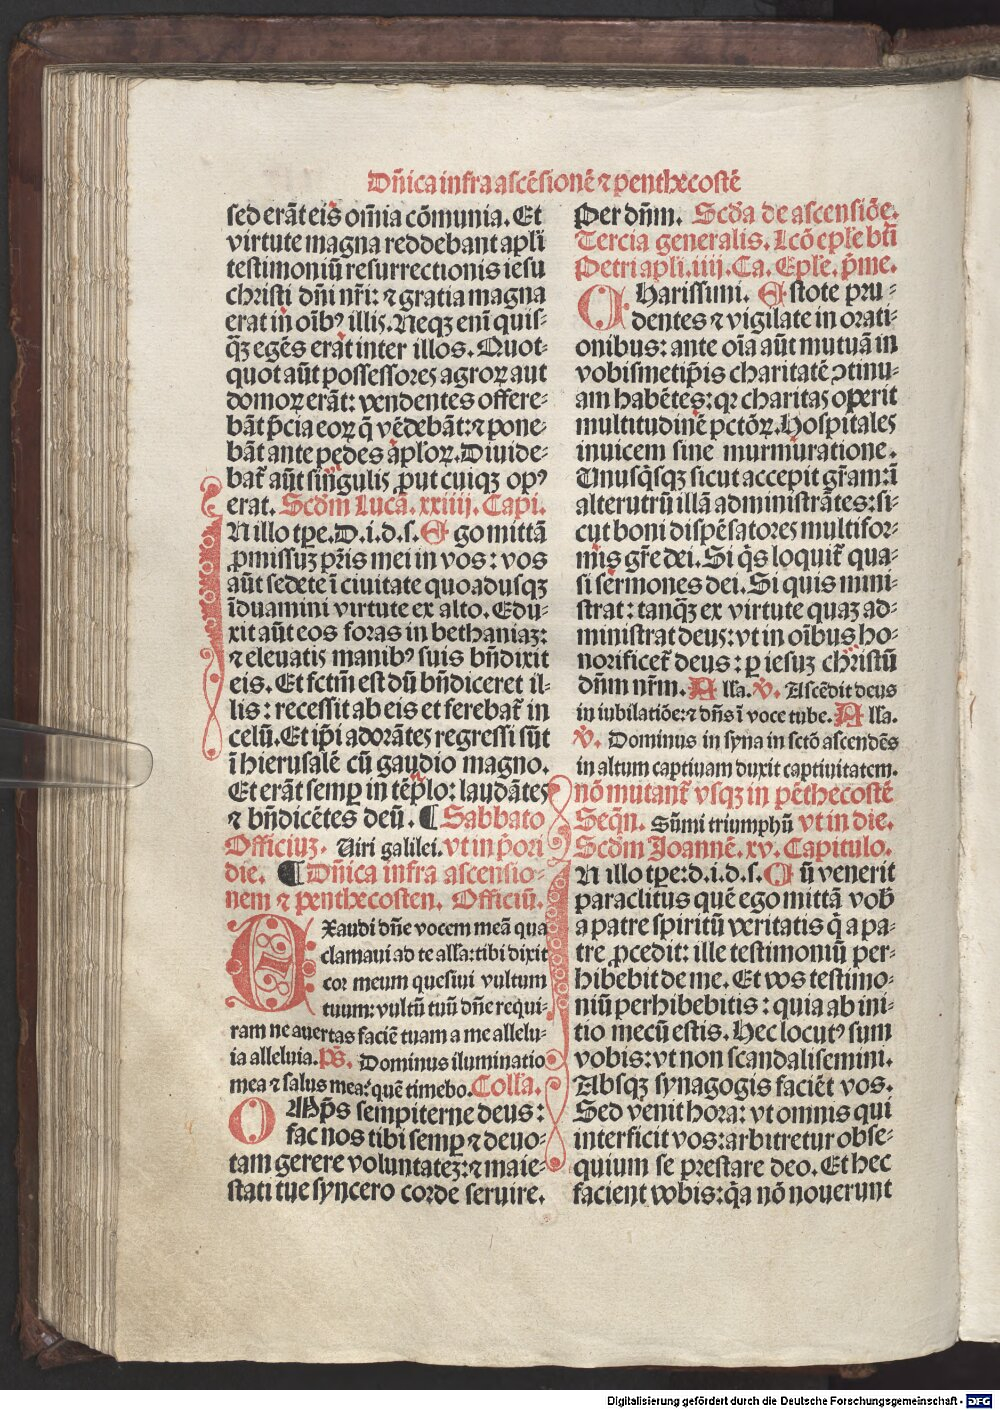 Dn̄ica infra ascēsionē ⁊ penthecostē
sed erāt eis om̄ia cōmunia. Et
virtute magna reddebant apl̄i
testimoniū resurrectionis iesu
christi dn̄i nr̄i: ⁊ gratia magna
erat in oībꝰ illis. Neqꝫ enī quis-
qꝫ̄ egēs erāt inter illos. Quot-
quot aūt possessores agroꝝ aut
domoꝝ erāt: vendentes offere-
bāt p̄cia eoꝝ q̄ vēdebāt: ⁊ pone-
bāt ante pedes aplo̅ꝝ. Diuide-
bat̄ aūt singulis ꝓut cuiqꝫ opꝰ
erat. Scd̄m Lucā. xxiiij. Capi.
IN illo tp̄e. D. i. d. s. Ego mittā
ꝓmissuꝫ pr̄is mei in vos: vos
aūt sedete ī ciuitate quoadusqꝫ
īduamini virtute ex alto. Edu-
xit aūt eos foras in bethaniaꝫ:
⁊ eleuatis manibꝰ suis bn̄dixit
eis. Et fctm̄ est dū bn̄diceret il-
lis: recessit ab eis et ferebat̄ in
celū. Et ip̄i adorātes regressi sūt
ī hierusalē cū gaudio magno.
Et erāt semꝑ in tēplo: laudātes
⁊ bn̄dicētes deū. ¶ Sabbato
Officiuꝫ. Uiri galilei. vt in p̄ori
die. ¶ Dn̄ica infra ascensio-
nem ⁊ penthecosten. Officiū.
EXaudi dn̄e vocem meā qua
clamaui ad te all̄a: tibi dixit
cor meum quesiui vultum
tuum: vultū tuū dn̄e requi-
ram ne auertas faciē tuam a me allelu-
ia alleluia. Ps̄. Dominus iluminatio
mea ⁊ salus mea: quē timebo. Coll̄a.
OMp̄s sempiterne deus:
fac nos tibi semꝑ ⁊ deuo-
tam gerere voluntateꝫ: ⁊ maie-
stati tue syncero corde seruire.
Per dn̄m. Scd̄a de ascensiōe.
Tercia generalis. Lcō ep̄le bt̄i
Petri apl̄i. iiij. Ca. Ep̄le. p̄me.
CHarissimi. Estote pru-
dentes ⁊ vigilate in orati-
onibus: ante oīa aūt mutuā in
vobismetip̄is charitatē ꝯtinu-
am habētes: qꝛ charitas operit
multitudinē pctōꝝ. Hospitales
inuicem sine murmuratione.
Unusq̄sqꝫ sicut accepit gr̄am: ī
alterutrū illā administrātes: si-
cut boni dispēsatores multifor-
mis gr̄e dei. Si q̄s loquit̄ qua-
si sermones dei. Si quis mini-
strat: tanqꝫ̄ ex virtute quaꝫ ad-
ministrat deus: vt in oībus ho-
norificet̄ deus: ꝑ iesuꝫ christū
dn̄m nr̄m. All̄a. v̄. Ascēdit deus
in iubilatiōe: ⁊ dn̄s ī voce tube. All̄a.
v̄. Dominus in syna in sctō ascendēs
in altum captiuam duxit captiuitatem.
nō mutant̄ vsqꝫ in pēthecostē
Seqn̄. Sūmi triumphū vt in die.
Scd̄m Joannē. xv. Capitulo.
IN illo tp̄e: d. i. d. s. Cū venerit
paraclitus quē ego mittā vob̄
a patre spiritū veritatis q̄ a pa-
tre ꝓcedit: ille testimoniū per-
hibebit de me. Et vos testimo-
niū perhibebitis: quia ab ini-
tio mecū estis. Hec locutꝰ sum
vobis: vt non scandalisemini.
Absqꝫ synagogis faciēt vos.
Sed venit hora: vt omnis qui
interficit vos: arbitretur obse-
quium se prestare deo. Et hec
facient vobis: q̄a nō nouerunt
Digitalisierung gefördert durch die Deutsche Forschungsgemeinschaft - DFG